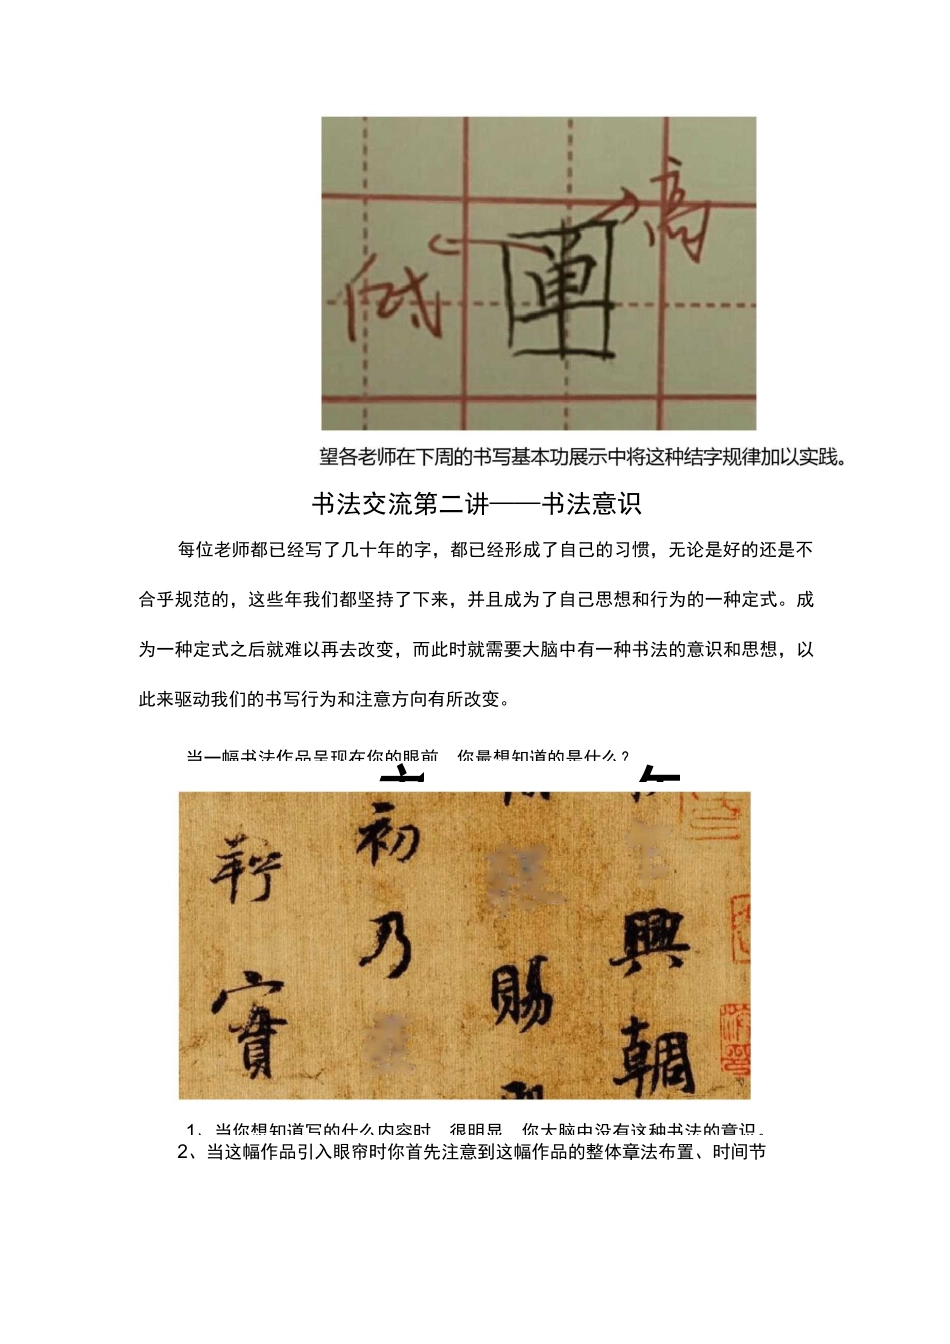 高
低
望各老师在下周的书写基本功展示中将这种结字规律加以实践。
书法交流第二讲——书法意识
每位老师都已经写了几十年的字，都已经形成了自己的习惯，无论是好的还是不
合乎规范的，这些年我们都坚持了下来，并且成为了自己思想和行为的一种定式。成
为一种定式之后就难以再去改变，而此时就需要大脑中有一种书法的意识和思想，以
此来驱动我们的书写行为和注意方向有所改变。
当一幅书法作品呈现在你的眼前，你最想知道的是什么？
興朝
賜
初乃
實
1、当你想知道写的什么内容时，很明显，你大脑中没有这种书法的意识。
2、当这幅作品引入眼帘时你首先注意到这幅作品的整体章法布置、时间节